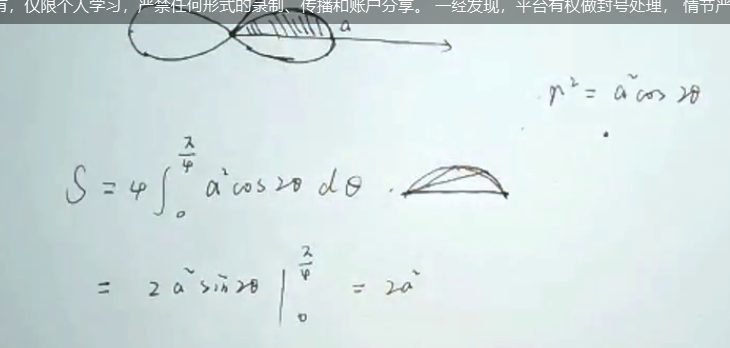 有，仅限个人学习，严禁任何形式的录制、传播和账户分享。 一经发现，平台有权做封号处理， 情节严
a
r² = a² cos 2θ
S = 4 ∫₀^(π/4) a² cos 2θ dθ .
= 2 a² sin 2θ |₀^(π/4) = 2a²